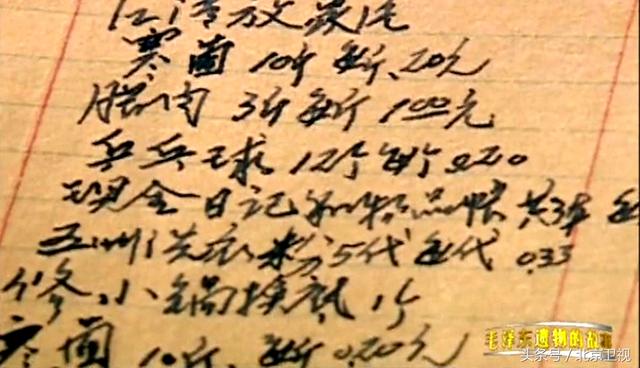 寒菌 10斤 每斤.20元
腊肉 3斤 每斤 1.00元
乒乓球 12个 每个 0.20
现金日记和物品帐 共3本
五洲洗衣粉 5代 每代 0.33
修小锅换底 1个
寒菌 10斤 每斤 0.20元
毛泽东遗物的故事
头条号／北京卫视